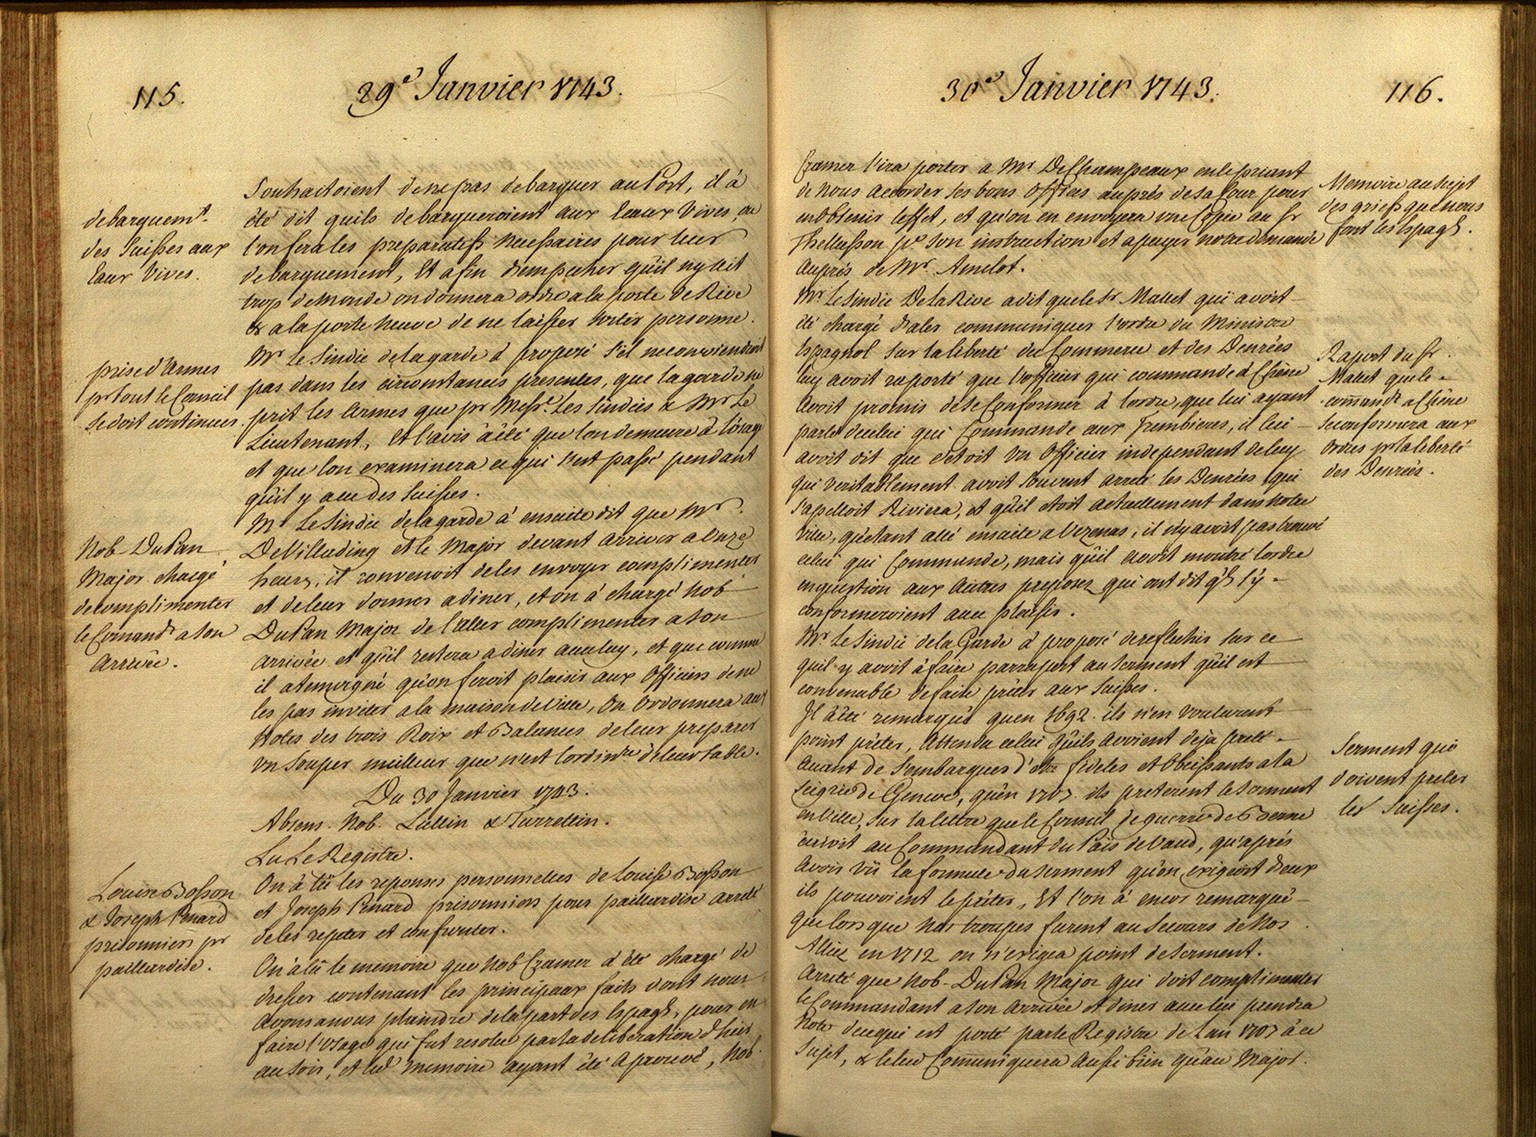 115.
29e Janvier 1743.
debarquemt.
des Suisses aux
Eaux Vives.
prise d'Armes
pr tout le Conseil
se doit continuer.
Nob. DuPan
Major chargé
de complimenter
le Comandt a son
Arrivée.
Louise Bosson
& Joseph Penard
prisonniers pr
paillardise.
Souhaitoient de ne pas debarquer au Port, il a
été dit quils debarqueroient aux Eaux Vives, ou
l'on fera les preparatifs necessaires pour leur
debarquement, Et afin d'empecher qu'il ny ait
trop de monde on donnera ordre a la porte de Rive
& a la porte neuve de ne laisser sortir personne.
Mr le Sindic de la garde à proposé s'il ne conviendroit
pas dans les circonstances presentes, que la garde ne
prit les Armes que pr Messrs les Sindics & Mr le
Lieutenant, Et l'avis a été que l'on demeure à l'usage
et que l'on examinera ce qui s'est passé pendant
qu'il y a eu des Suisses.
Mr Le Sindic de la garde à ensuite dit que Mr.
DeVillading et le Major devant arriver a Onze
heures, il convenoit de les envoyer complimenter
et de leur donner a diner, et on à chargé Nob
DuPan Major de l'aller complimenter a son
arrivée et qu'il restera a diner avec luy, et que comme
il a temoigné qu'on feroit plaisir aux Officiers de ne
les pas inviter a la maison de Ville, On Ordonnera aux
Hotes des trois Rois et Balances de leur preparer
un souper meilleur que n'est l'ordinre de leur table.
Du 30 Janvier 1743.
Absens. Nob. Lullin & Turrettin.
Lu Le Registre.
On à lû les reponses personnelles de Louise Bosson
et Joseph Penard prisonniers pour paillardise arreté
de les repeter et confronter.
On a lû le memoire que Nob Cramer a été chargé de
dresser contenant les principaux faits dont nous
avons a nous plaindre de la part des Espagls, pour en
faire l'usage qui fut resolu par la deliberation d'hier
au soir, et led memoire ayant été Aprouvé, Nob.
30e Janvier 1743.
116.
Cramer l'ira porter a Mr DeChampeaux en le priant
de nous accorder ses bons Offices auprés de sa Cour pour
en Obtenir l'effet, et qu'on en envoyera une Copie au Sr
Thellusson pr son instruction et apuyer notre demande
Auprés de Mr Amelot.
Mr Le Sindic DelaRive a dit que le Sr Mallet qui avoit
été chargé d'aler communiquer l'ordre du Ministre
Espagnol sur la liberté du Commerce et des Denrées
luy avoit raporté que l'officier qui commande à Chêne
Avoit promis de se Conformer à l'ordre, que lui ayant
parlé de celui qui Commande aux Trembieres, il lui
avoit dit que c'etoit un Officier independant de luy
qui veritablement avoit souvent arreté les Denrées qui
s'apelloit Riviera, et qu'il etoit actuellement dans notre
Ville, qu'etant allé ensuite a Vezenas, il n'y avoit pas trouvé
celui qui Commande, mais qu'il avoit montré l'ordre
en question aux Autres preposez qui ont dit qls s'y
conformeroient avec plaisir.
Mr Le Sindic de la Garde à proposé de reflechir sur ce
quil y avoit à faire par raport au serment qu'il est
convenable de faire prêter aux Suisses.
Il a été remarqué quen 1692. ils n'en voulurent
point prêter, Attendu celui qu'ils avoient deja preté
Avant de s'embarquer d'etre fideles et Obeissants a la
Seigrie de Geneve, qu'en 1707 ils preterent le Serment
en Ville, sur la lettre que le Conseil de guerre de Berne
écrivit au Commandant du Païs de Vaud, qu'aprés
Avoir vû la formule du serment qu'on exigeoit d'eux
ils pouvoient le prêter, Et l'on à encor remarqué
que lors que nos troupes furent au secours de Nos
Alliez en 1712 on n'exigea point de Serment.
Arreté que Nob. DuPan Major qui doit complimenter
le Commandant a son Arrivée et diner avec lui prendra
Note de ce qui est porté par le Registre de l'an 1707 à ce
Sujet, & le leur Communiquera Aussi bien qu'au Major.
Memoire au sujet
des griefs que nous
font les Espagls.
Raport du Sr.
Mallet que le
commandt a Chêne
se conformera aux
Ordres pr la liberté
des Denrées.
Serment que
doivent preter
les Suisses.